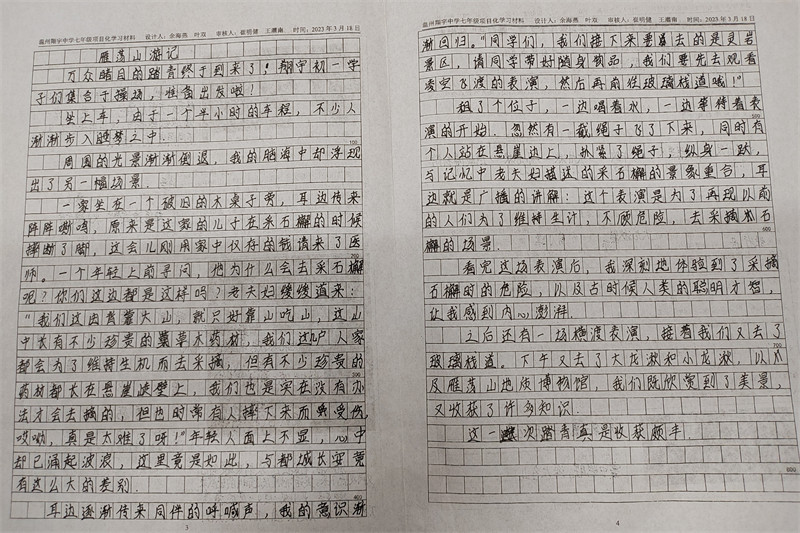 温州翔宇中学七年级项目化学习材料 设计人：余海燕 叶双 审核人：崔明健 王潇南 时间：2023年3月18日
雁荡山游记
万众瞩目的踏青终于到来了，翔宇初一学
子们集合于操场，准备出发啦！
坐上车，由于一个半小时的车程，不少人
渐渐步入睡梦之中.
100
周围的光景渐渐倒退，我的脑海中却浮现
出了另一幅场景.
一家坐在一个破旧的木桌子旁，耳边传来
阵阵嘶哮，原来是这家的儿子在采石斛的时候
摔断了脚，这会儿刚用家中仅存的钱请来了医
200
师。一个年轻上前寻问，他为什么会去采石斛
呢？你们这边都是这样吗？老夫妇缓缓道来：
“我们这出背靠大山，就只好靠山吃山，这山
中长有不少珍贵的草本药材，我们这几户人家
都会为了维持生机而去采摘，但有不少珍贵的
300
药材都长在悬崖峭壁上，我们也是实在没有办
法才会去摘的，但也时常有人摔下来而受伤，
哎呦，真是太难了呀！”年轻人面上不显，心中
却已涌起波浪，这里竟是如此，与都城长安竟
有这么大的差别.
400
耳边逐渐传来同伴的呼喊声，我的意识渐
3
温州翔宇中学七年级项目化学习材料 设计人：余海燕 叶双 审核人：崔明健 王潇南 时间：2023年3月18日
渐回归。“同学们，我们接下来要去的是灵岩
景区，请同学带好随身物品，我们要先去观看
凌空飞渡的表演，然后再前往玻璃栈道哦！”
租了个位子，一边喝着水，一边等待着表
演的开始.忽然有一截绳子飞了下来，同时有
500
个人站在悬崖边上，抓紧了绳子，纵身一跃，
与记忆中老夫妇描述的采石斛的景象重合，耳
边就是广播的讲解：这个表演是为了再现以前
的人们为了维持生计，不顾危险，去采摘石
600
斛的场景.
看完这场表演后，我深刻地体验到了采摘
石斛时的危险，以及古时候人类的聪明才智，
让我感到内心澎湃.
之后还有一场横渡表演，接着我们又去了
700
玻璃栈道。下午又去了大龙湫和小龙湫，以
及雁荡山地质博物馆，我们既欣赏到了美景，
又收获了许多知识.
这一次踏青真是收获颇丰.
800
4